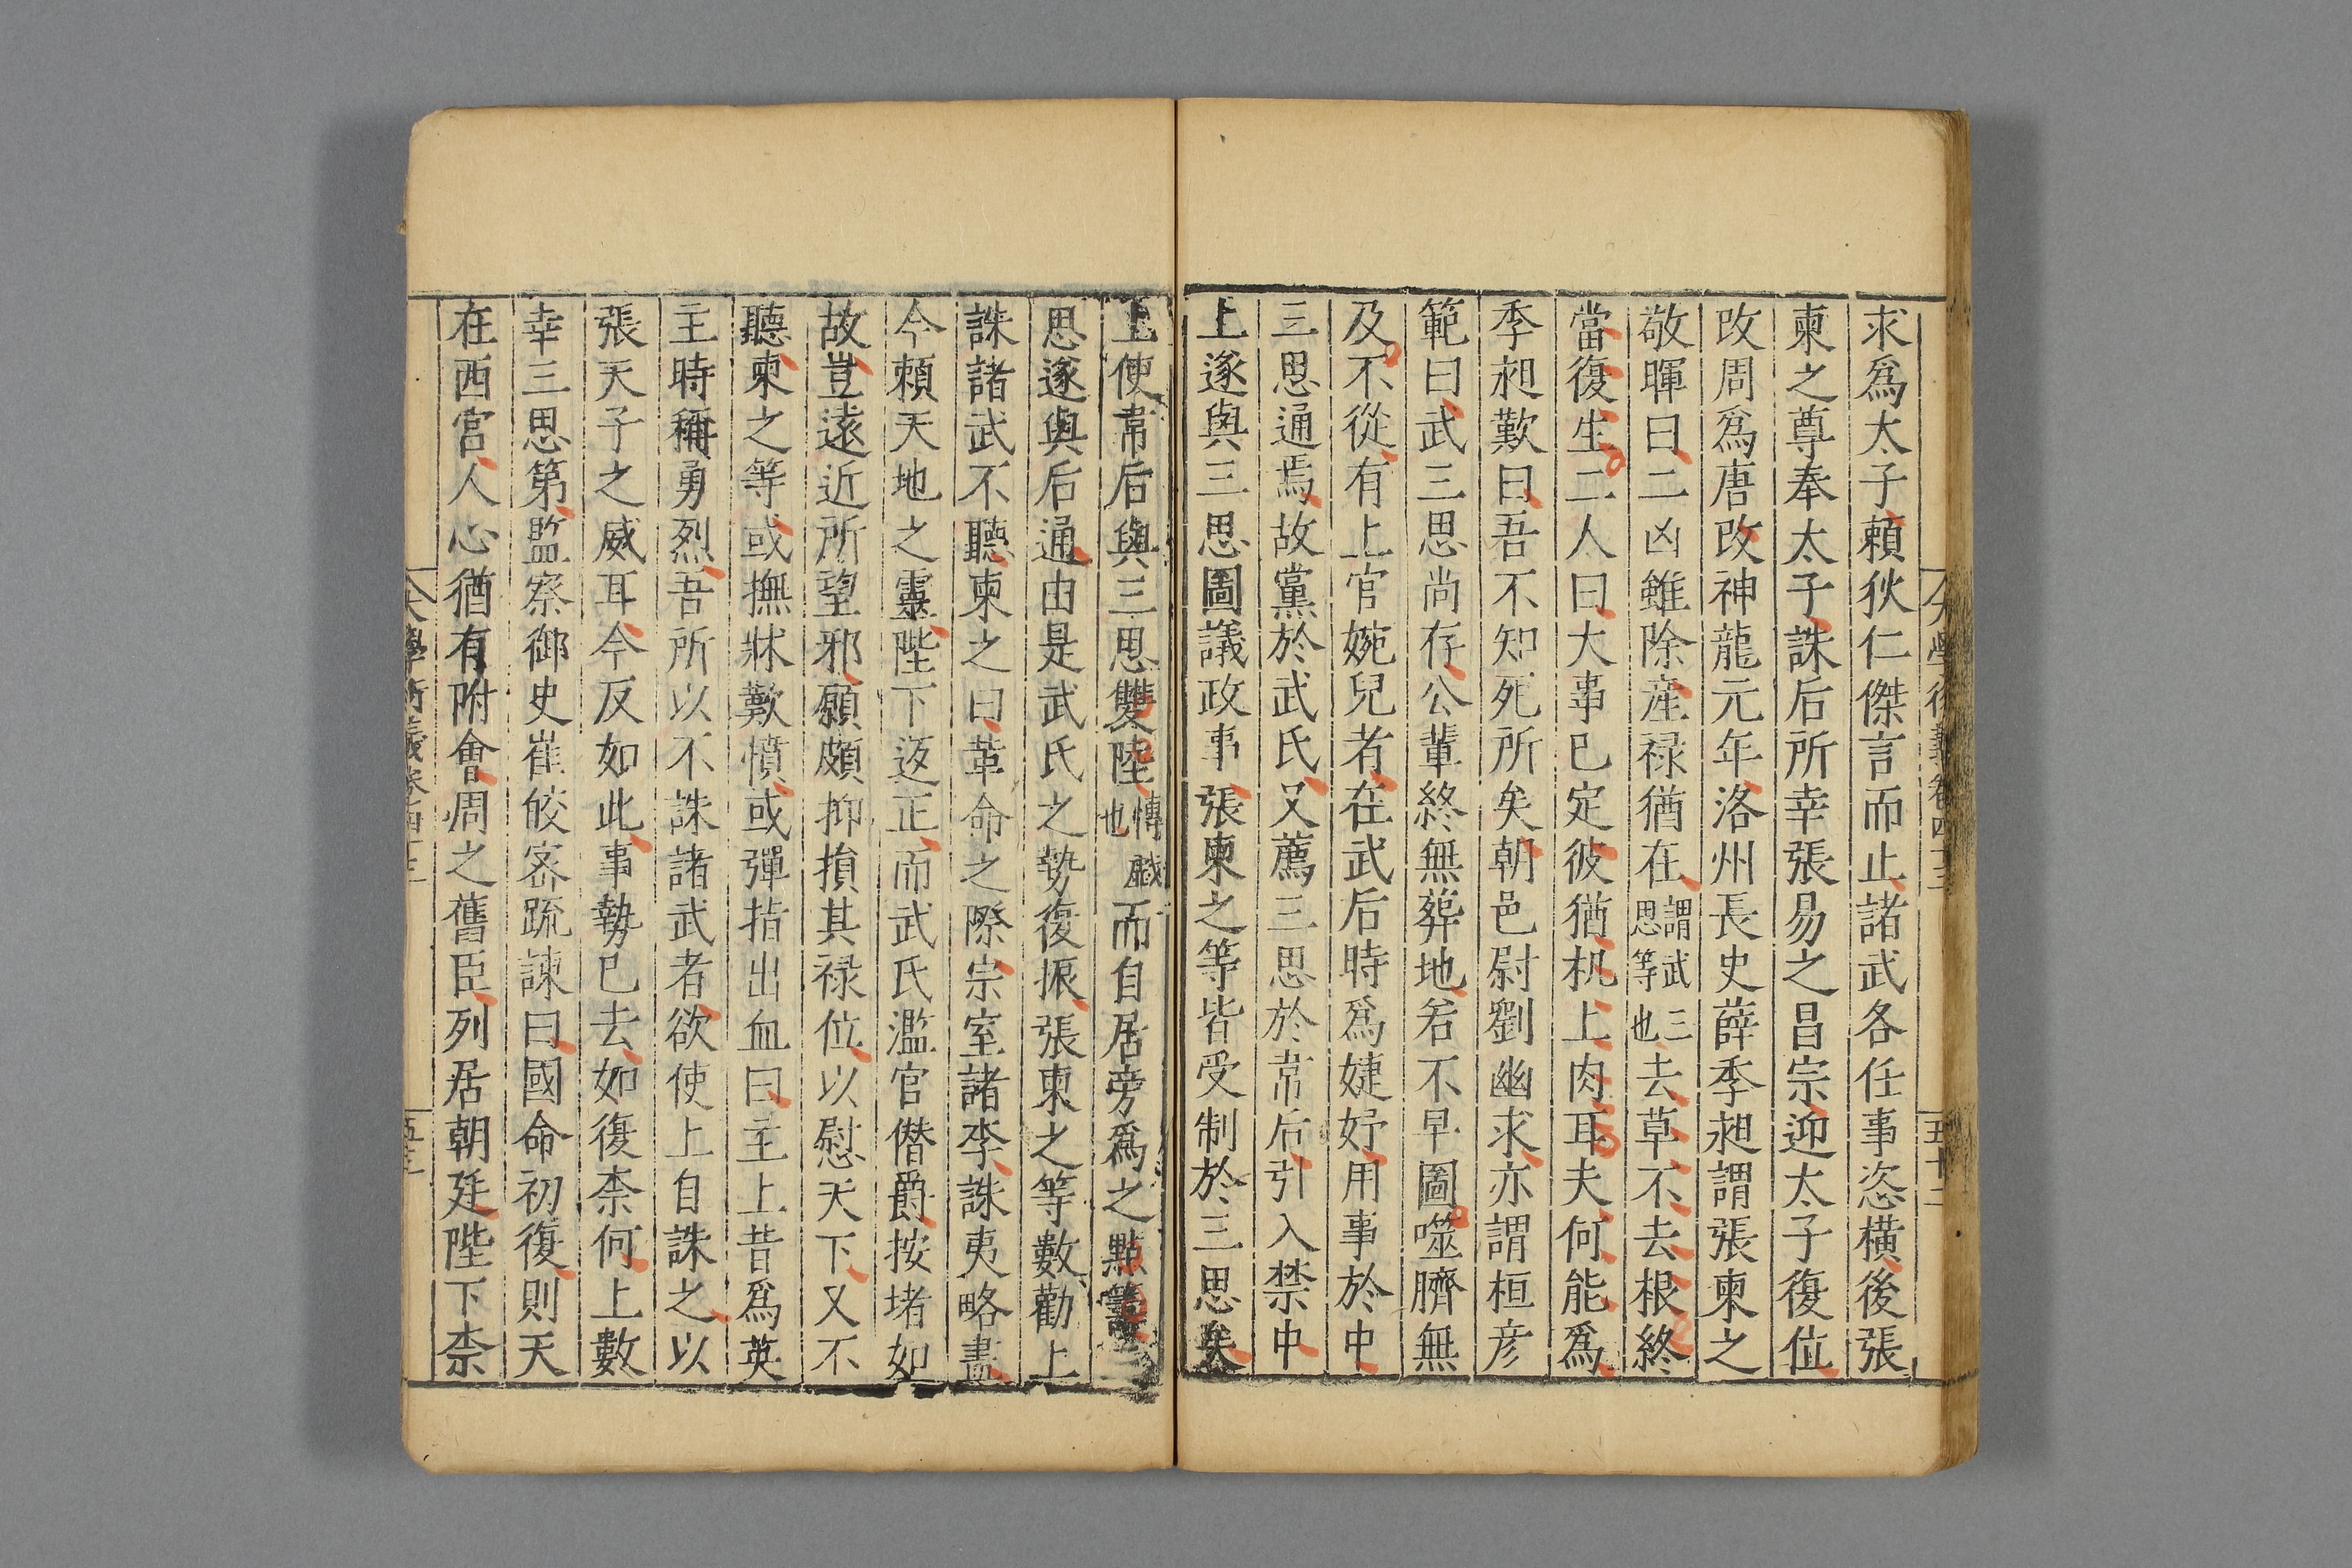 大學衍義卷四十三
五十二
求爲太子頼狄仁傑言而止諸武各任事恣橫後張
柬之尊奉太子誅后所幸張易之昌宗迎太子復位
改周爲唐改神龍元年洛州長史薛季昶謂張柬之
敬暉曰二凶雖除産禄猶在謂武三思等也去草不去根終
當復生二人曰大事已定彼猶机上肉耳夫何能爲
季昶歎曰吾不知死所矣朝邑尉劉幽求亦謂桓彦
範曰武三思尚存公輩終無葬地若不早圖噬臍無
及不從有上官婉兒者在武后時爲婕妤用事於中
三思通焉故黨於武氏又薦三思於韋后引入禁中
上遂與三思圖議政事張柬之等皆受制於三思矣
上使韋后與三思雙陸慱戯也而自居旁爲之點籌三
思遂與后通由是武氏之勢復振張柬之等數勸上
誅諸武不聽柬之曰革命之際宗室諸李誅夷略盡
今頼天地之靈陛下返正而武氏濫官僣爵按堵如
故豈遠近所望邪願頗抑損其禄位以慰天下又不
聽柬之等或撫牀歎憤或彈指出血曰主上昔爲英
王時稱勇烈吾所以不誅諸武者欲使上自誅之以
張天子之威耳今反如此事勢已去如復柰何上數
幸三思第監察御史崔皎宻疏諫曰國命初復則天
在西宫人心猶有附會周之舊臣列居朝廷陛下柰
大學衍義卷四十三
五十三